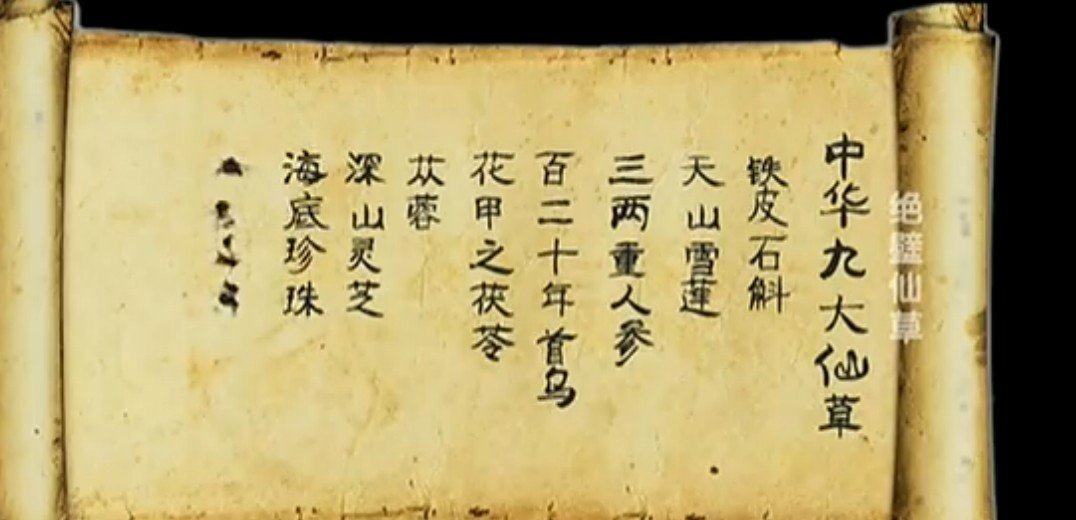 中华九大仙草
铁皮石斛
天山雪蓮
三两重人参
百二十年首乌
花甲之茯苓
苁蓉
深山灵芝
海底珍珠
绝壁仙草